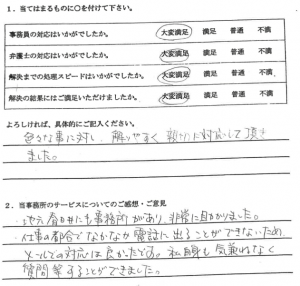 1. 当てはまるものに○を付けて下さい。
事務員の対応はいかがでしたか。 大変満足 満足 普通 不満
弁護士の対応はいかがでしたか。 大変満足 満足 普通 不満
解決までの処理スピードはいかがでしたか。 大変満足 満足 普通 不満
解決の結果にはご満足いただけましたか。 大変満足 満足 普通 不満
よろしければ、具体的にご記入ください。
色々な事に対し、解りやすく親切に対応して頂き
ました。
2. 当事務所のサービスについてのご感想・ご意見
・地元春日井にも事務所があり、非常に助かりました。
・仕事の都合でなかなか電話に出ることができないため、
メールでの対応は良かったです。私自身も気兼ねなく
質問等することができました。